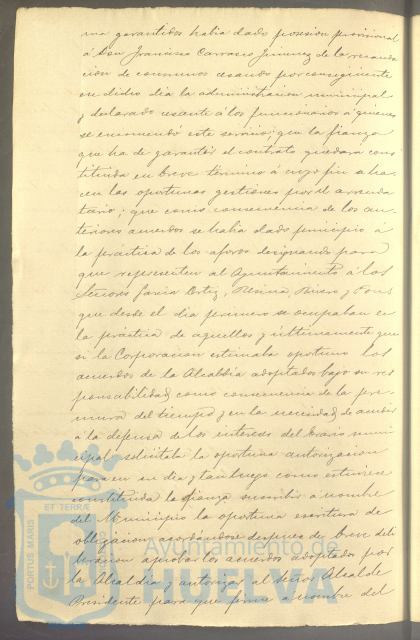 ma garantidos habia dado posesion provisional
á Don Francisco Carrasco Jimenez de la recauda
cion de consumos cesando por consiguiente
en dicho dia la administracion municipal
y declarado cesante á los funcionarios á quienes
se encomendó este servicio; que la fianza
que ha de garantir el contrato quedara cons
tituida en breve término á cuyo fin se ha
cen las oportunas gestiones por el arrenda
tario; que como consecuencia de los an
teriores acuerdos se habia dado principio á
la práctica de los aforos designando para
que representen al Ayuntamiento á los
Señores Garcia Ortiz, Rivero y Pons
que desde el dia primero se ocupaban en
la práctica de aquellos y últimamente que
si la Corporacion estimaba oportuno los
acuerdos de la Alcaldia adoptados bajo su res
ponsabilidad como consecuencia de la pre
mura del tiempo y en la necesidad de acudir
á la defensa de los intereses del Erario muni
cipal solicitaba la oportuna autorizacion
para en su dia y tan luego como estuviese
constituida la fianza suscribir á nombre
del Municipio la oportuna escritura de
obligacion acordandose despues de breve deli
beracion aprobar los acuerdos adoptados por
la Alcaldia y autorizar al Señor Alcalde
Presidente para que firme á nombre del
ET TERRÆ
PORTUS MARIS
Ayuntamiento de
HUELVA